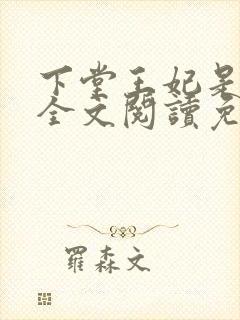 下堂王妃是
全文閱讀免
羅森文